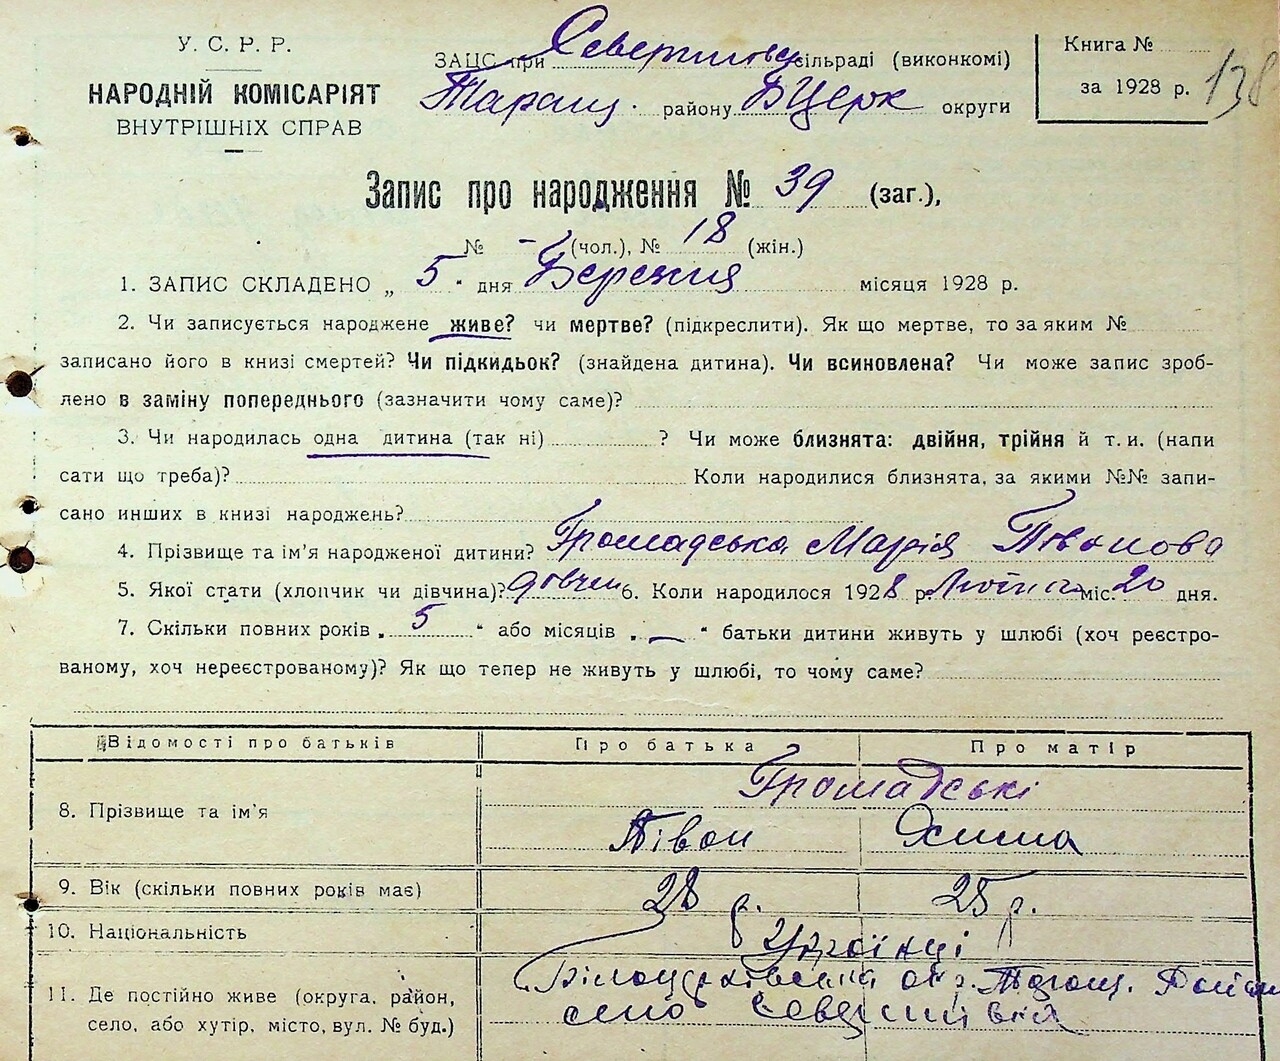 У. С. Р. Р.
НАРОДНІЙ КОМІСАРІЯТ
ВНУТРІШНІХ СПРАВ
ЗАЦС при сільраді (виконкомі)
Таращ. району БЦерк округи
Книга №
за 1928 р. 138
Запис про народження № 39 (заг.),
№ – (чол.), № 18 (жін.)
1. ЗАПИС СКЛАДЕНО „ 5 " дня Березня місяця 1928 р.
2. Чи записується народжене живе? чи мертве? (підкреслити). Як що мертве, то за яким №
записано його в книзі смертей? Чи підкидьок? (знайдена дитина). Чи всиновлена? Чи може запис зроб-
лено в заміну попереднього (зазначити чому саме)?
3. Чи народилась одна дитина (так ні) ? Чи може близнята: двійня, трійня й т. и. (напи
сати що треба)? Коли народилися близнята, за якими №№ запи-
сано инших в книзі народжень?
4. Прізвище та ім'я народженої дитини? Громадська Марія
5. Якої стати (хлопчик чи дівчина)? 6. Коли народилося 1928 р. міс. 20 дня.
7. Скільки повних років „ 5 " або місяців „ — " батьки дитини живуть у шлюбі (хоч реєстро-
ваному, хоч нереєстрованому)? Як що тепер не живуть у шлюбі, то чому саме?
Відомості про батьків Про батька Про матір
Громадські
8. Прізвище та ім'я
Півон Яхина
9. Вік (скільки повних років має) 28 р. 25 р.
10. Національність Українці
11. Де постійно живе (округа, район, Білоцерківська окр. Таращ. район
село, або хутір, місто, вул. № буд.) село